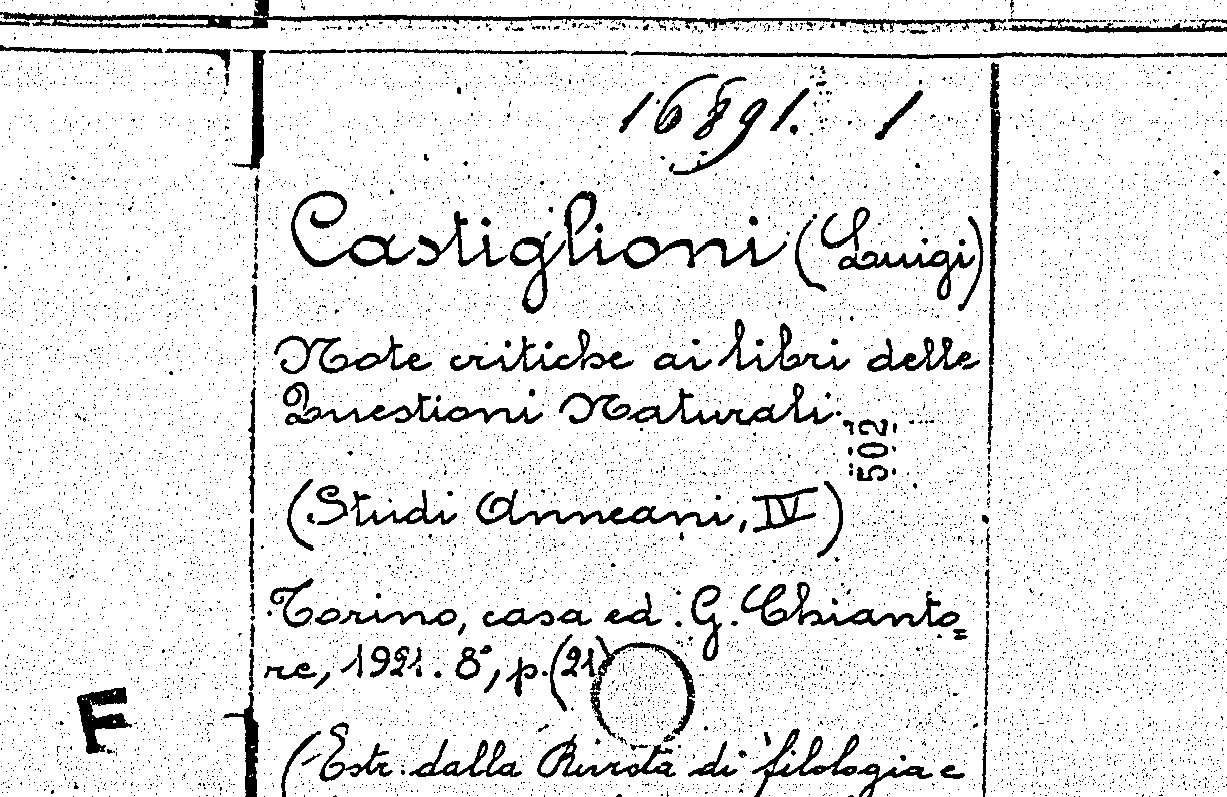 16891. 1
Castiglioni (Luigi)
Note critiche ai libri delle
Questioni Naturali.
502
(Studi Anneani, IV)
Torino, casa ed. G. Chianto=
re, 1921. 8°, p. (21)
F
(Estr. dalla Rivista di filologia e